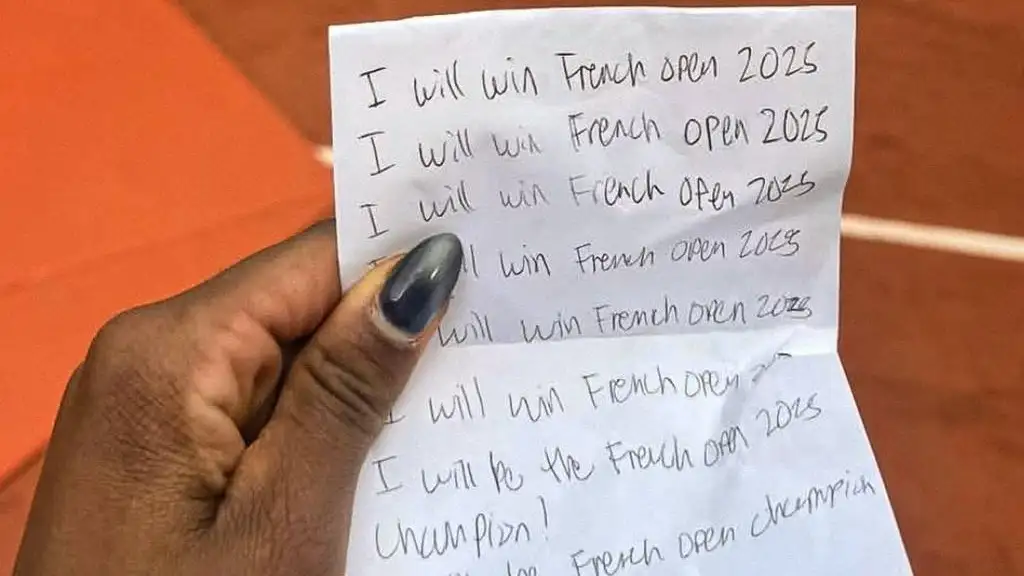 I will win French open 2025
I will win French open 2025
I will win French open 2025
win French open 2025
will win French open 2025
I will win French open
I will be the French open 2025
Champion!
French open champion